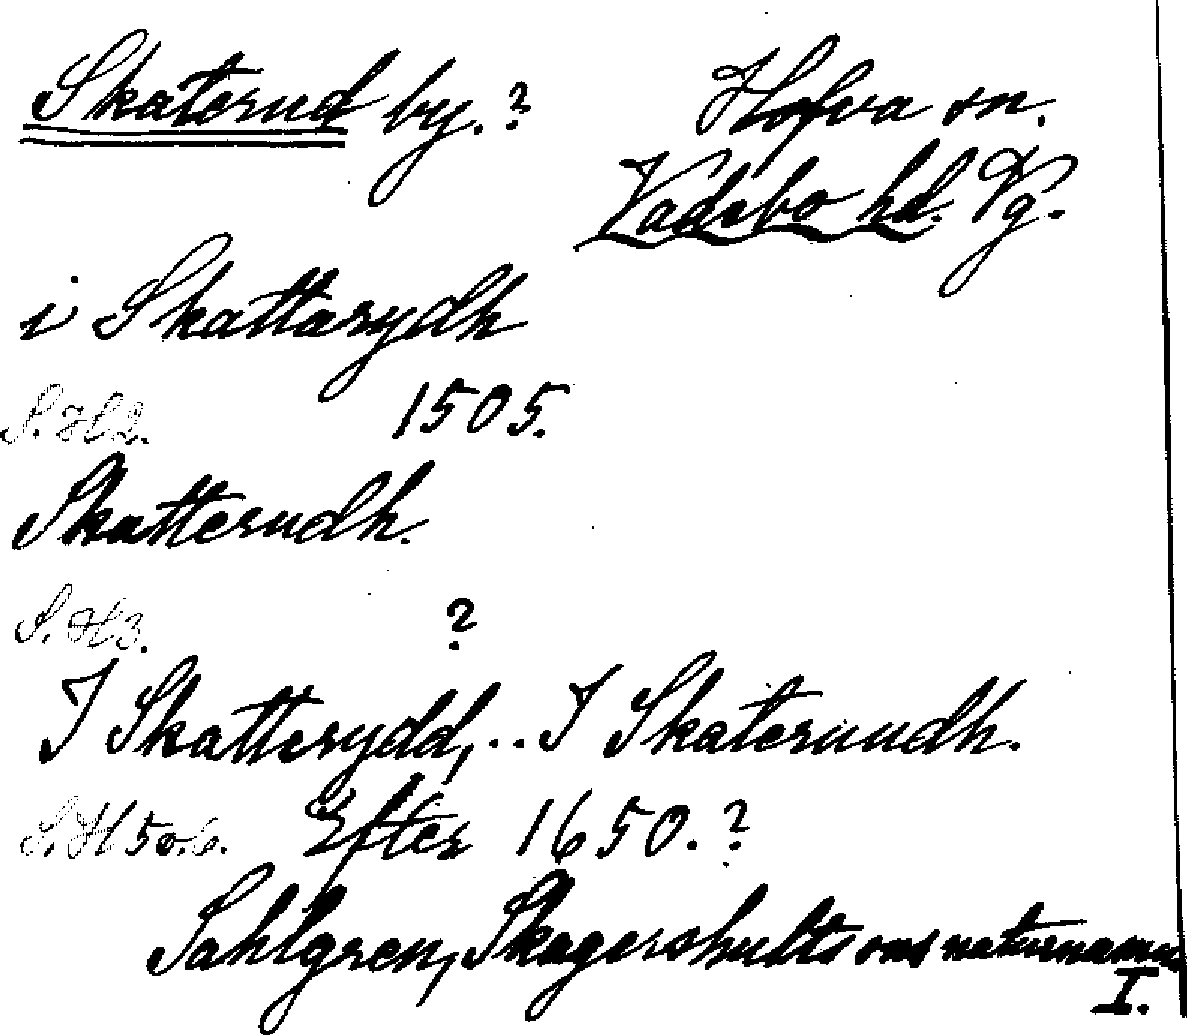 Skaterud by.? Hofva sn.
Vadsbo hd. Vg.
i Skattarydh
S. H 2. 1505.
Skatterudh.
S. H 3. ?
I Skatterydd, .. I Skateruudh.
S. H 5 o. 6. Efter 1650.?
Sahlgren, Skagershults sns naturnamn
I.